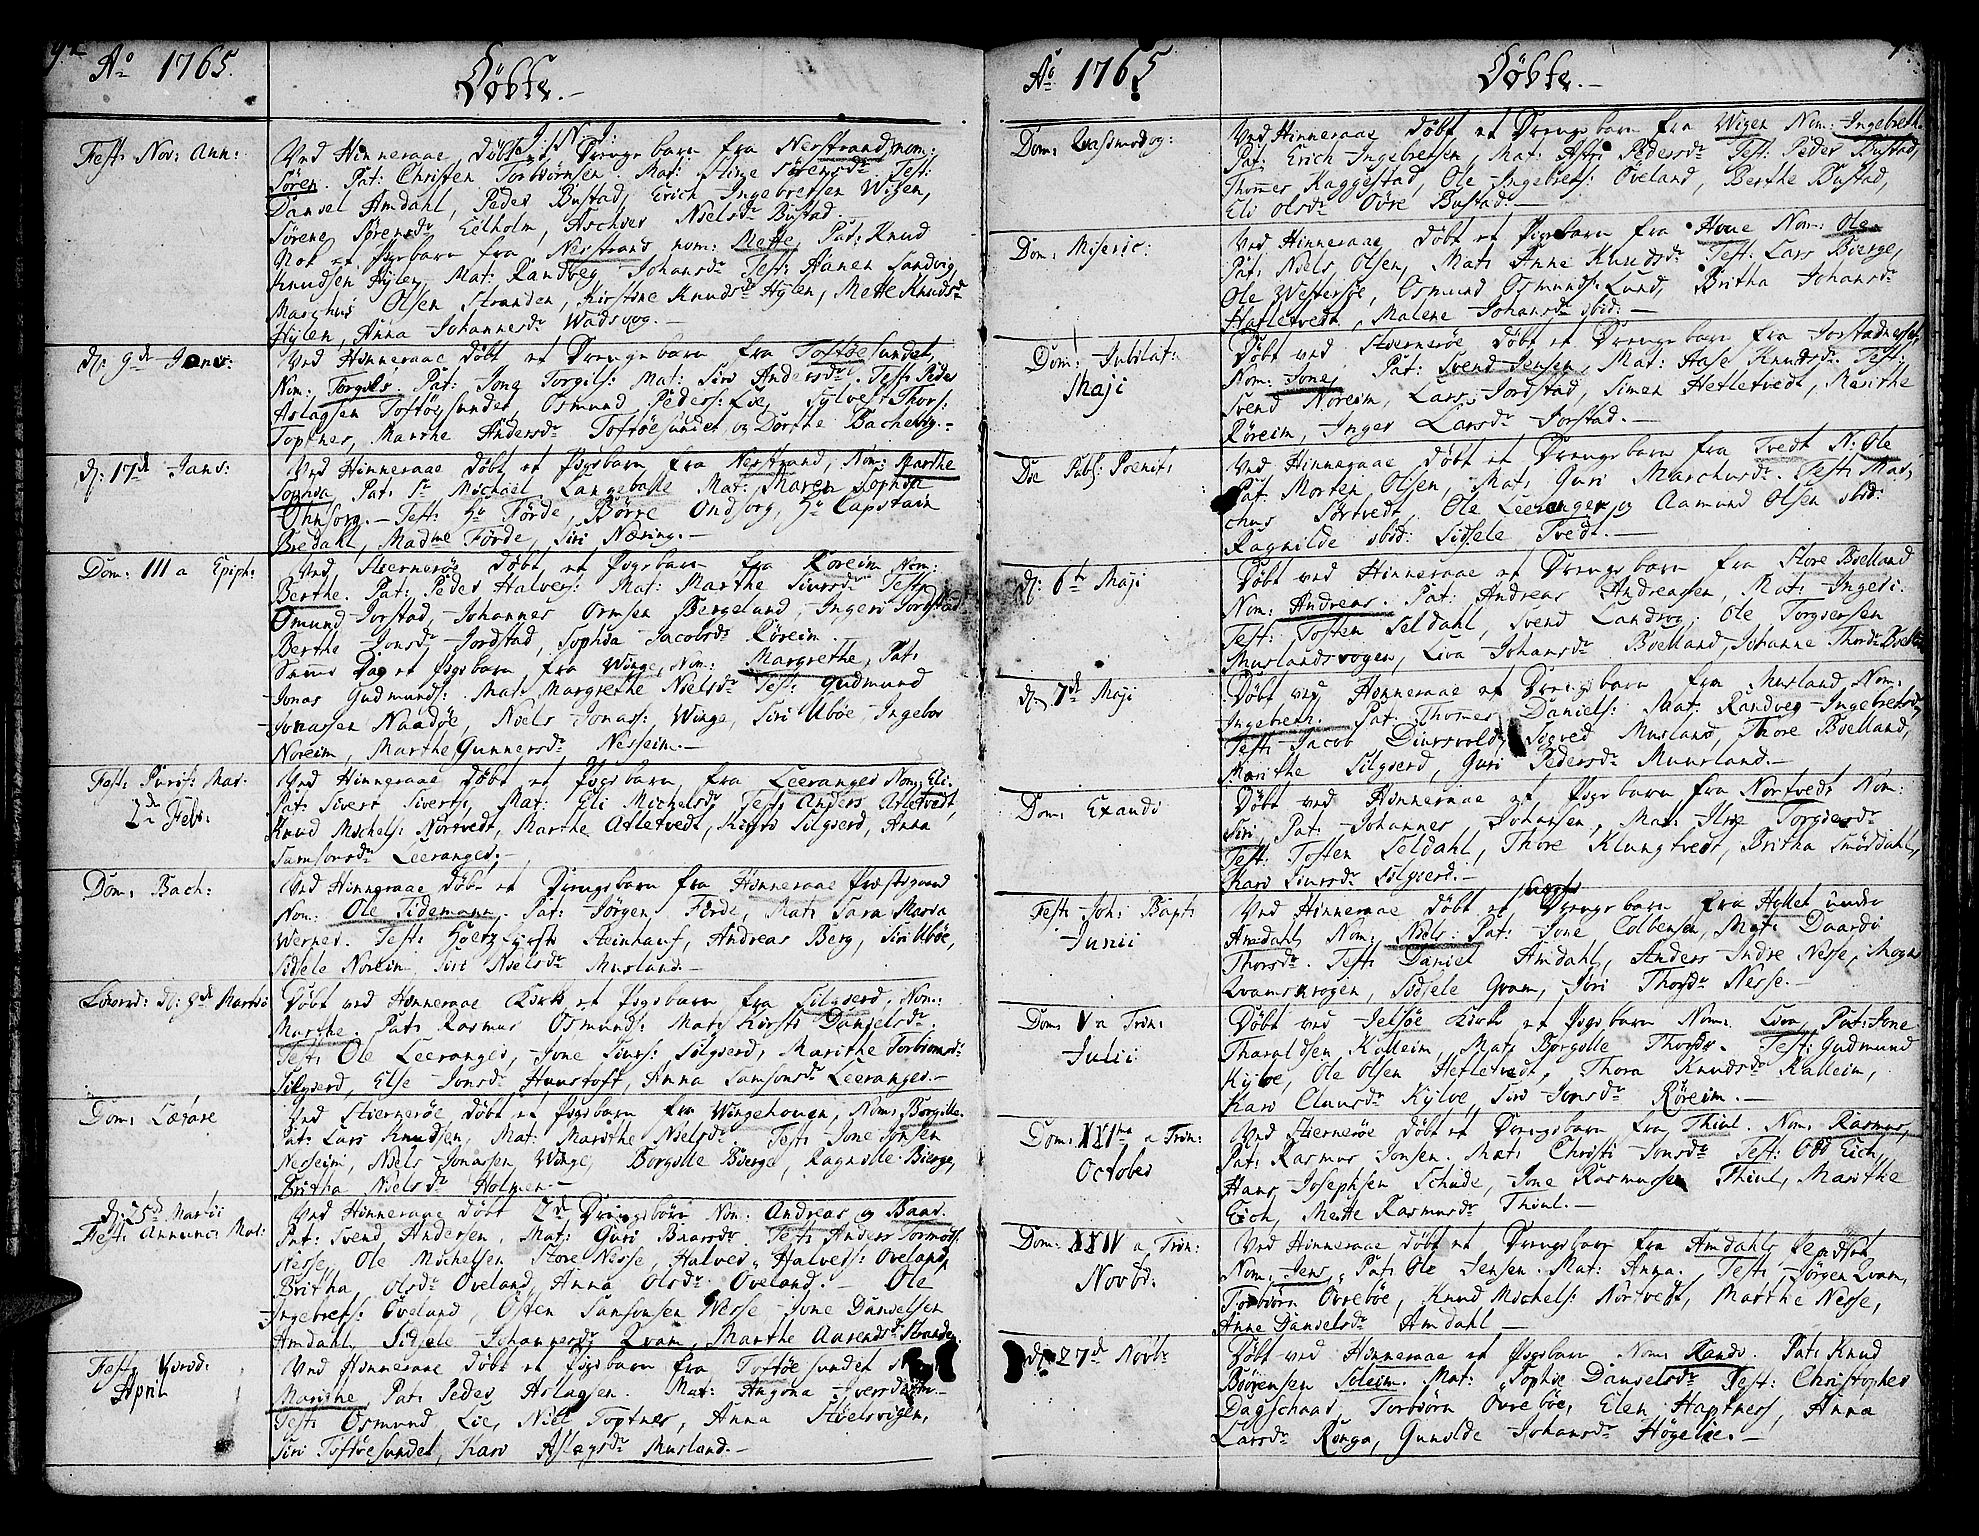 Aō 1765.
Döbte.
J: N: J:
Fest: Nov: Ann:
Ved Hinneraae döbt et Drengebarn fra Nerstrand, nom:
Sören. Pat: Christen Torbiörnsen. Mat: Stine Sörensdr. Test:
Daniel Amdahl, Peder Bustad, Erich Ingebretsen Wigen,
Sörene Sörensdr Eelholm, Aschier Nielsdr Bustad.
Nok et Pigebarn fra Nerstrand nom: Mette, Pat: Knud
Knudsen Hylen, Mat: Randveg Johansdr Test: Hanen Sandvig,
Marchus Olsen Stranden, Kirstine Knudsdr Hylen, Mette Knudsdr
Hylen, Anna Johannesdr Wadsvog.
d: 9de Janv:
Ved Hinneraae döbt et Drengebarn fra Toftöesundet,
Nom: Torgils. Pat: Jone Torgils: Mat: Siri Andersdr. Test: Peder
Aslagsen Toftöesundet, Osmund Peders: Lie, Sylvest Thors:
Toptnes, Marthe Andersdr Toftöesundet og Dorthe Bacheberg.
d: 17de Janv:
Ved Hinneraae döbt et Pigebarn fra Nerstrand, Nom: Marthe
Sophia, Pat: Sr Michael Langeballe Mat: Maren Sophia
Ohnsorg. Test: Hr Förde, Börre Ondsorg, Hr Capitain
Bredahl, Madme Förde, Siri Næring.
Dom: III a Epiph:
Ved Stierneröe döbt et Pigebarn fra Röreim Nom:
Berthe. Pat: Peder Halvers: Mat: Marthe Siursdr Test:
Omund Jorstad, Johannes Ormsen Bergeland, Ingeri Jordstad
Berthe Jonsdr Jordstad, Sophia Jacobsdr Röreim.
Samme Dag et Pigebarn fra Winge, Nom: Margrethe, Pat:
Jonas Gudmunds: Mat: Margrethe Nielsdr Test: Gudmund
Jonassen Naadöe, Niels Jonass: Winge, Siri Uböe, Ingebor
Noreim, Marthe Gunnersdr Nesseim.
Fest: Purif: Mar:
2dn Febr:
Ved Hinneraae döbt et Pigebarn fra Leeranger Nom: Eli.
Pat: Sivert Sivers: Mat: Eli Michelsdr Test: Anders Atletvedt,
Knud Michels: Nörtvedt, Marthe Atletvedt, Kirsti Silgierd, Anna
Samsonsdr Leeranger.
Dom: Bach:
Ved Hinneraae döbt et Drengebarn fra Hinneraae Præstegaard
Nom: Ole Tidemann. Pat: Jörgen Förde, Mat: Sara Maria
Werner. Test: Steinkauf, Andreas Berg, Siri Uböe,
Sidsele Noreim Siri Nielsdr Musland.
d: 9de Martii
Döbt ved Hinneraae Kirke et Pigebarn fra Silgierd, Nom:
Marthe. Pat: Rasmus Osmunds: Mat: Kirsti Danielsdr.
Test: Ole Leeranger, Jone Siurs: Silgierd, Marithe Torbiörnsdr
Silgierd, Else Jonsdr Haustoft, Anna Samsonsdr Leeranger.
Dom: Lætare
Ved Stierneröe döbt et Pigebarn fra Wingehougen, Nom: Borgille.
Pat: Lars Knudsen, Mat: Marithe Nielsdr. Test: Jone
Nesseim, Niels Jonassen Winge, Borgille Bierge, Ragnille Bierge,
Britha Nielsdr Holmen.
d: 25de Martii
Fest: Annunc: Mar:
Ved Hinneraae döbt 2de Drengebörn Nom: Andreas og Baar.
Pat: Svend Andersen, Mat: Guri Baarsdr. Test: Anders Tormods:
Nesse, Ole Michelsen Store Nesse, Halver Halvers: Öveland,
Britha Olsdr Öveland, Anna Olsdr: Öveland. Ole
Ingebrets: Öveland, Osten Samsonsen Nesse Jone Danielsen
Amdahl, Sidsele Johannesdr Qvam, Marthe Aarendsdr Stranden.
April
Ved Hinneraae döbt et Pigebarn fra Toftöesundet
Marithe Pat: Peder Aslagsen. Mat: Angona Iversdatr
Test: Osmund Lie, Niels Toptnes, Anna Stöelsvigen,
Siri Toftöesundet, Kari Aslegsdr Musland.
Aō 1765
Döbte.
Dom: Qvasimodog:
Ved Hinneraae döbt et Drengebarn fra Wigen Nom: Ingebreth.
Pat: Erich Ingebretsen, Mat: Astri Pedersdr Test: Peder Bustad,
Thomes Kaggestad, Ole Ingebrets: Öveland, Berthe Bustad,
Eli Olsdr Övre Bustad.
Dom: Miseric:
Ved Hinneraae döbt et Pigebarn fra Houe Nom: Olea
Pat: Niels Olsen, Mat: Anne Knudsdr Test: Lars Bierge,
Ole Westersöe, Osmund Osmunds: Lund, Britha Johansdr
Hetletvedt, Malene Johansdr ibid:
Dom: Jubilat:
Maji
Döbt ved Stierneröe döbt et Drengebarn fra Jorstadnesset
Nom: Jone, Pat: Svend Jensen, Mat: Hase Knudsdr. Test:
Svend Noreim, Lars Jordstad, Simen Hetletvedt, Marithe
Röreim, Inger Larsdr Jorstad.
Die Publ: Poenit:
Ved Hinneraae döbt et Drengebarn fra Tvedt N: Ole
Pat: Morten Olsen, Mat: Guri Marchusdr. Test: Mar-
chus Sörtvedt, Ole Leeranger, og Aamund Olsen ibid:
Ragnilde ibid: Sidsele Tvedt.
d: 6te Maji
Döbt ved Hinneraae et Drengebarn fra Store Boelland
Nom: Andreas. Pat: Andreas Andreassen, Mat: Ingeri.
Test: Tosten Seldahl, Svend Landvog, Ole Torgiersen
Muslandsvogen, Liva Johansdr Boelland, Johanne Thordr Boelland
d: 7de Maji
Döbt ved Hinneraae et Drengebarn fra Musland Nom:
Ingebreth. Pat: Thomes Daniels: Mat: Randveg Ingebretsdr,
Test: Jacob Diursvold, Sigved Musland, Thore Boelland,
Marithe Silgierd, Guri Pedersdr Muusland.
Dom: Exaudi
Döbt ved Hinneraae et Pigebarn fra Nörtvedt Nom:
Siri, Pat: Johannes Johansen, Mat: Ilse Torgiersdr
Test: Tosten Seldahl, Thore Klungtvedt, Britha Smördahl,
Kari Siursdr Silgierd.
Fest: Joh: Bapt:
Junii
Ved Hinneraae döbt et Drengebarn fra Hyttet under
Amdahl, Nom: Niels. Pat: Jone Colbensen, Mat: Daardi
Thorsdr. Test: Daniel Amdahl, Anders Indre Nesse, Mogns
Qvamskrogen, Sidsele Qvam, Siri Thorsdr Nesse.
Dom: V a Trin:
Julii
Döbt ved Jelsöe Kirke et Pigebarn Nom: Liva, Pat: Jone
Tharaldsen Kalleim, Mat: Borgille Thorsdr. Test: Gudmund
Kylve, Ole Olsen Hetletvedt, Thora Knudsdr Kalleim,
Kari Clausdr Kylve, Siri Jonsdr Röreim.
Dom: XXIma a Trin:
October
Ved Stierneröe döbt et Drengebarn fra Thiul. Nom: Rasmus,
Pat: Rasmus Jonsen. Mat: Christi Jonsdr Test: Odd Eich,
Hans Josephsen Schude, Jone Rasmussen Thiul, Marithe
Eich, Mette Rasmusdr Thiul.
Dom: XXIV a Trin:
Novbr:
Ved Hinneraae döbt et Drengebarn fra Amdahl,
Nom: Jens, Pat: Ole Jensen. Mat: Anna. Test: Jörgen Qvam,
Torbiörn Övreböe, Knud Michels: Nörtvedt, Marthe Nesse,
Anne Danielsdr Amdahl
d: 27de Novbr
Döbt ved Hinneraae et Pigebarn Nom: Randi. Pat: Knud
Biörensen Soleim. Mat: Sophie Danielsdr Test: Christopher
Dagschaad, Torbiörn Övreböe, Elen Haptness, Anna
Larsdr Ringa, Gunilde Johansdr Högelie.